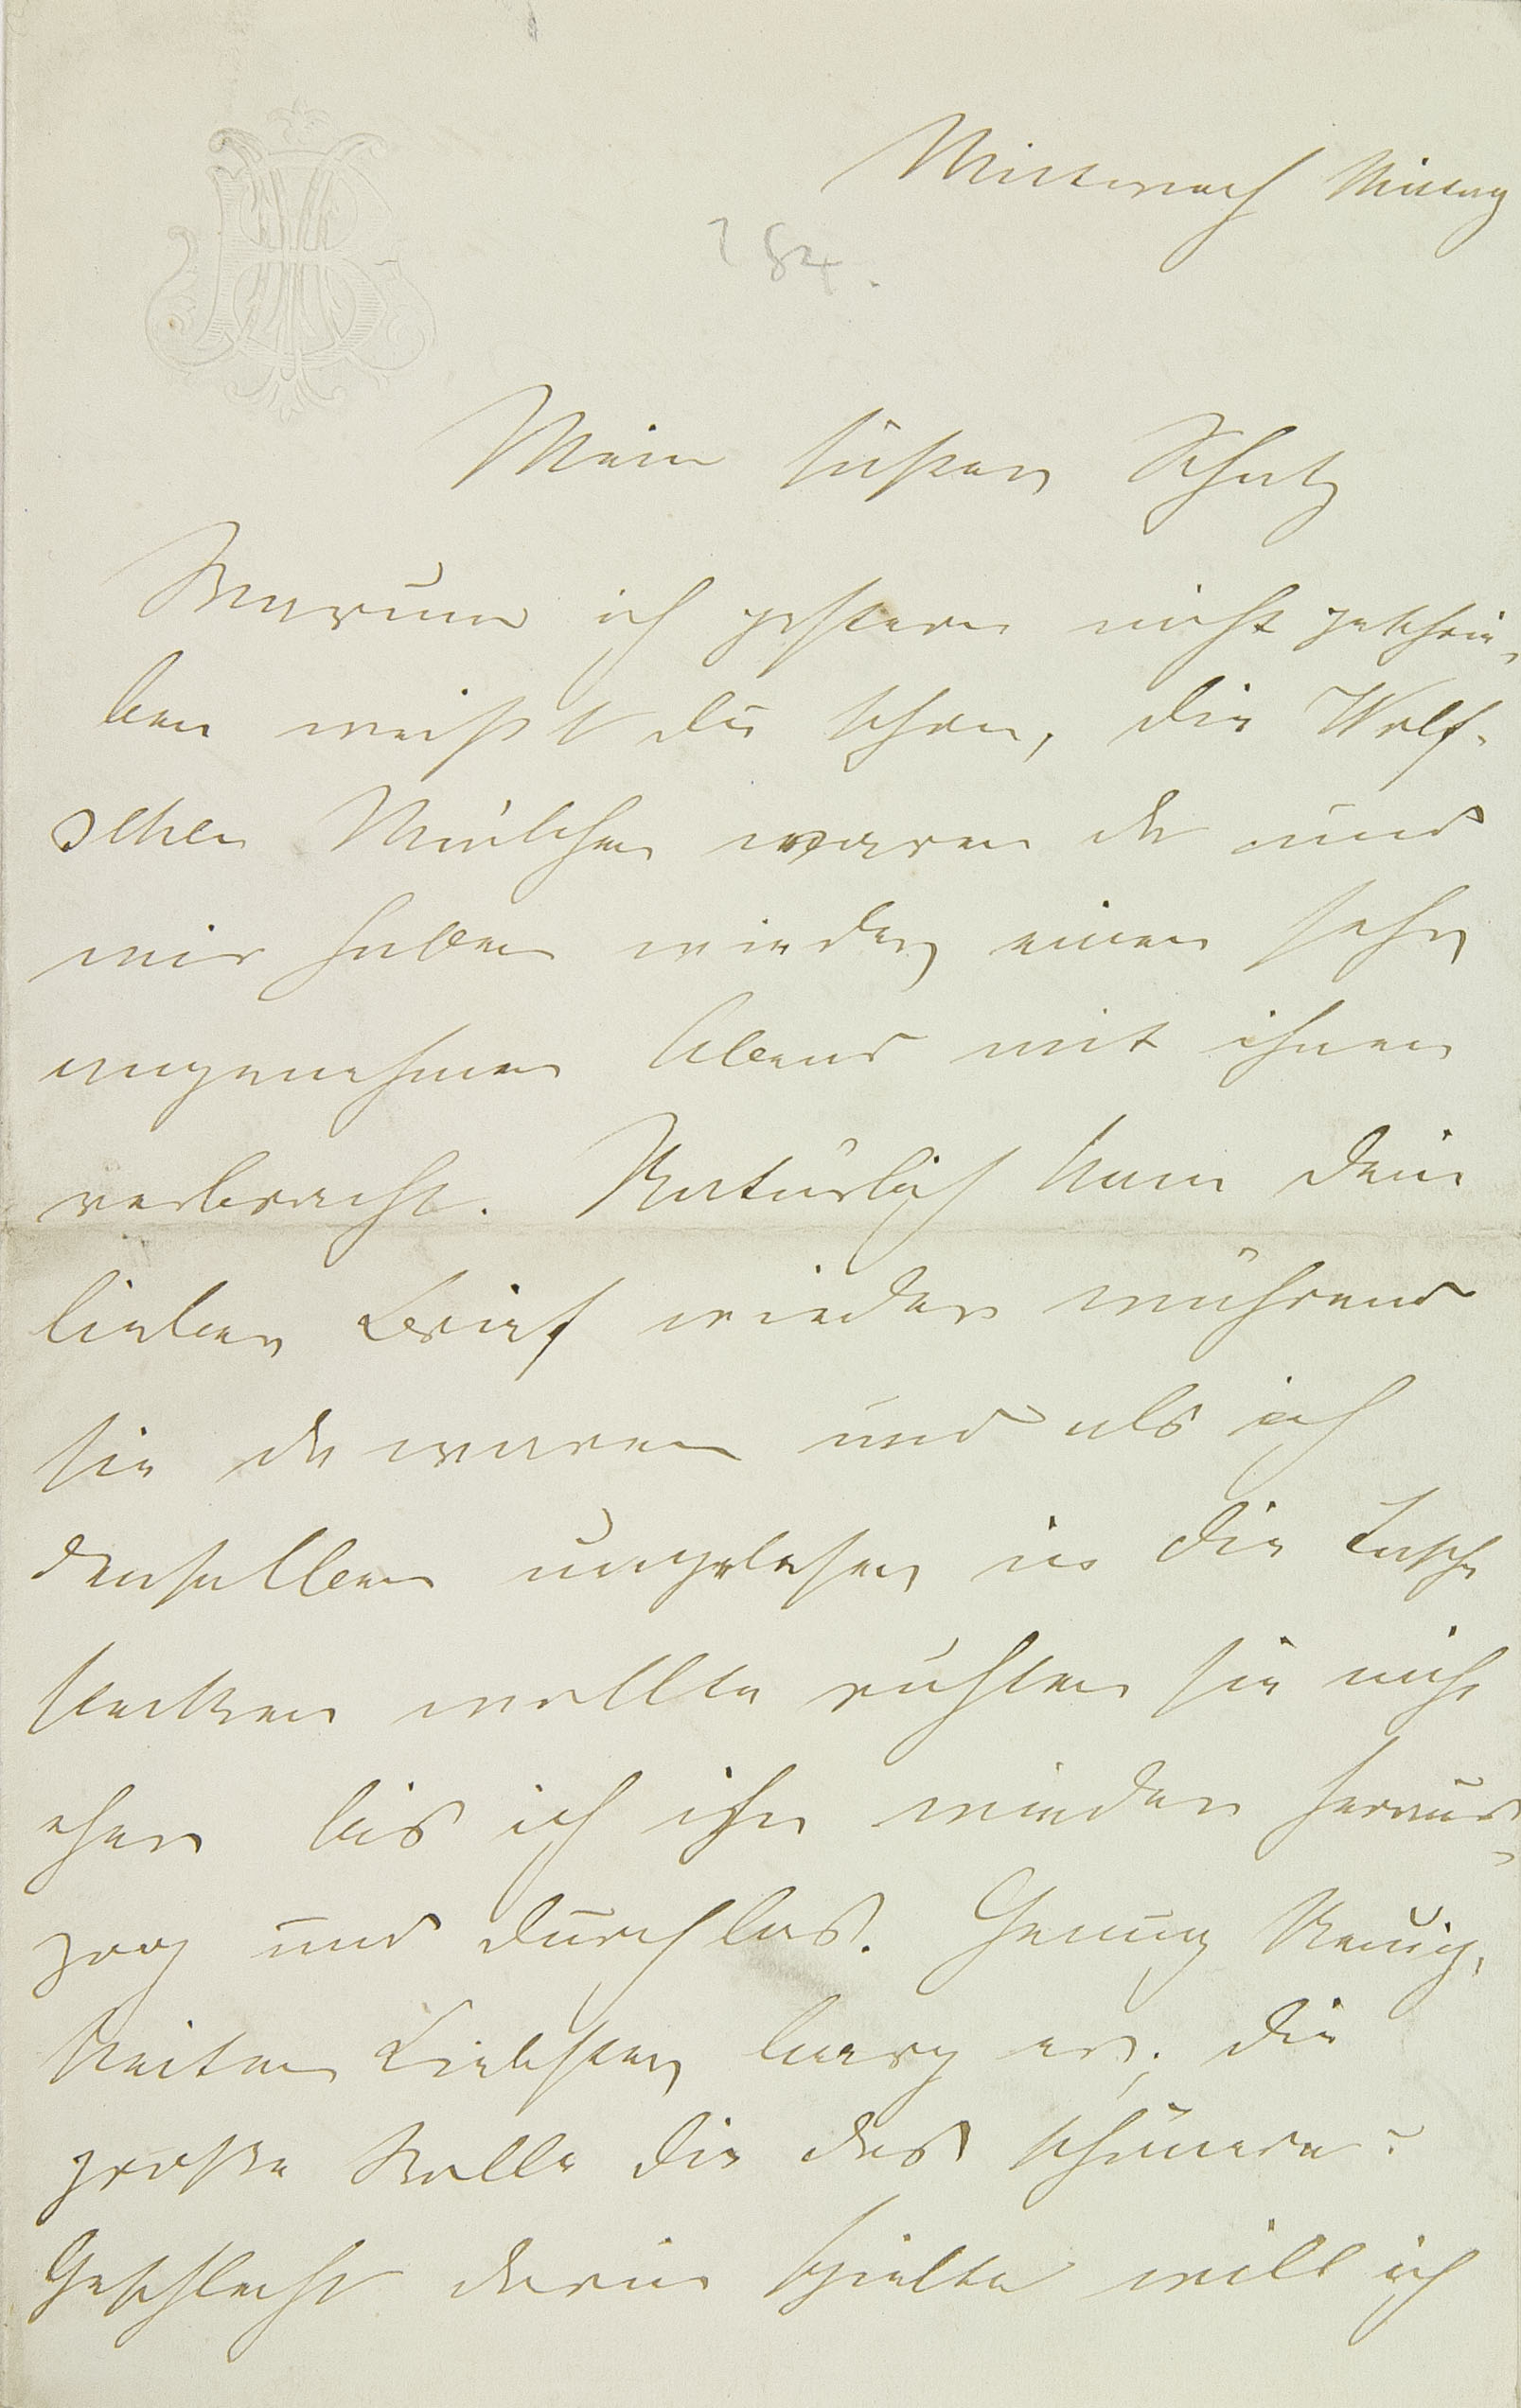 Mittwoch Mittag
284.
Mein süßer Schatz
Warum ich gestern nicht geschrie-
ben weißt du schon, die Wolf-
schen Mädchen waren da und
wir haben wieder einen sehr
angenehmen Abend mit ihnen
verbracht. Natürlich kam dein
lieber Brief wieder während
sie da waren und als ich
denselben ungelesen in die Tasche
stecken wollte ruhten sie nicht
eher bis ich ihn wieder heraus-
zog und durchlas. Genug Neuig-
keiten Liebster barg er, die
große Rolle die das schönere
Geschlecht darin spielte will ich